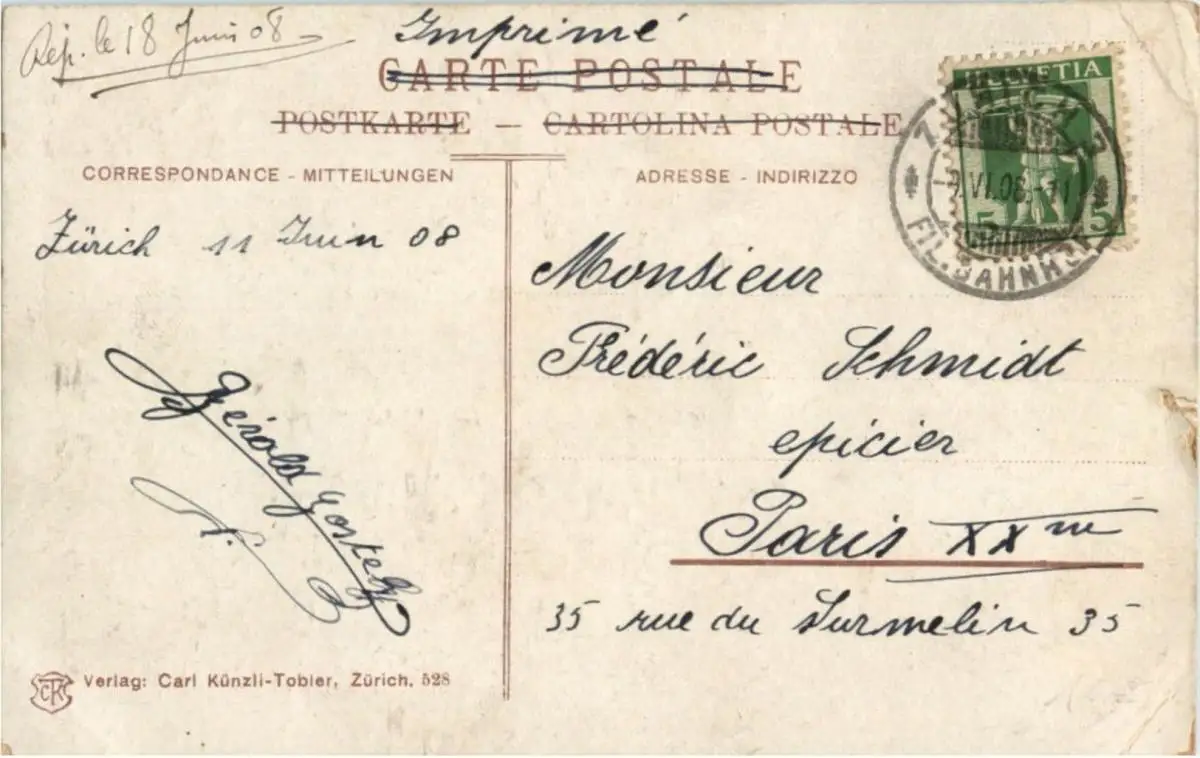 Rép. le 18 Juin 08
Imprimé
CARTE POSTALE
POSTKARTE — CARTOLINA POSTALE
CORRESPONDANCE - MITTEILUNGEN
ADRESSE - INDIRIZZO
HELVETIA
5 5
VI.08
FIL. BAHNHOF
Zürich 11 Juin 08
Monsieur
Frédéric Schmidt
epicier
Paris XXme
35 rue du Surmelin 35
Gérold
Verlag: Carl Künzli-Tobler, Zürich. 528